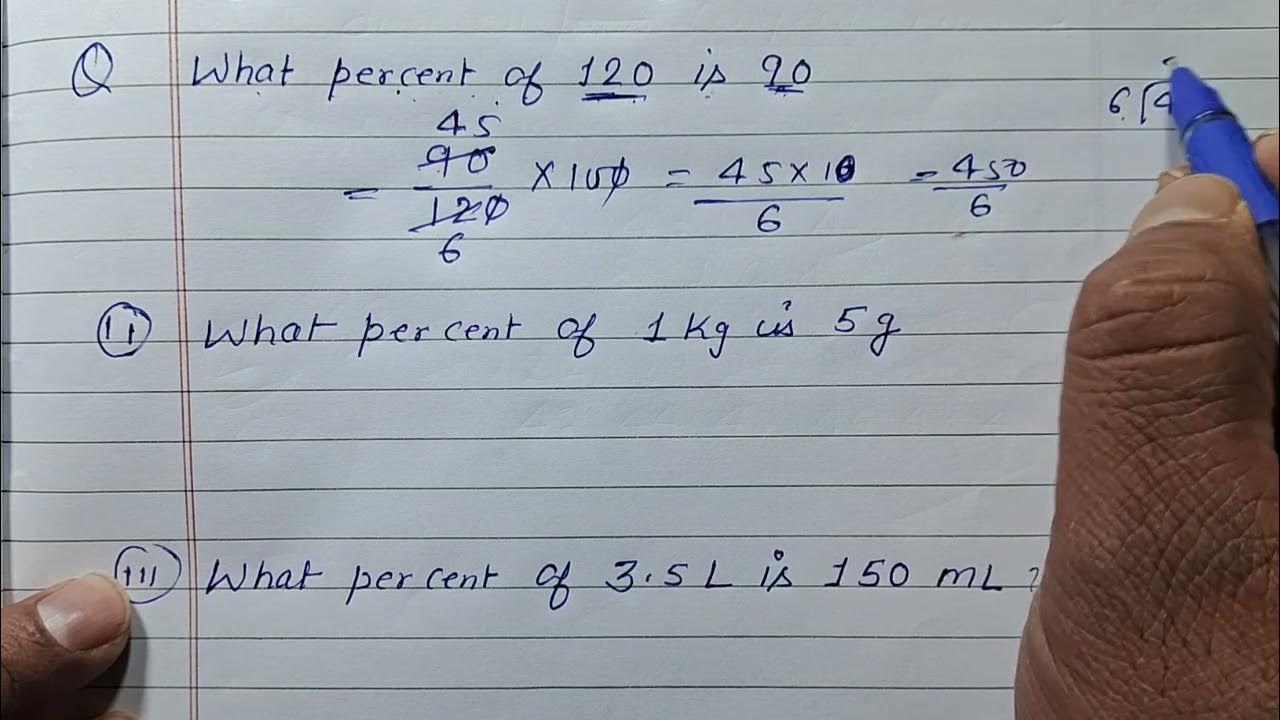 Q What percent of 120 is 90
45
= 90/120 × 100 = 45 × 10/6 = 450/6
6
6 4
(ii) What percent of 1 Kg is 5 g
(iii) What percent of 3.5 L is 150 mL ?